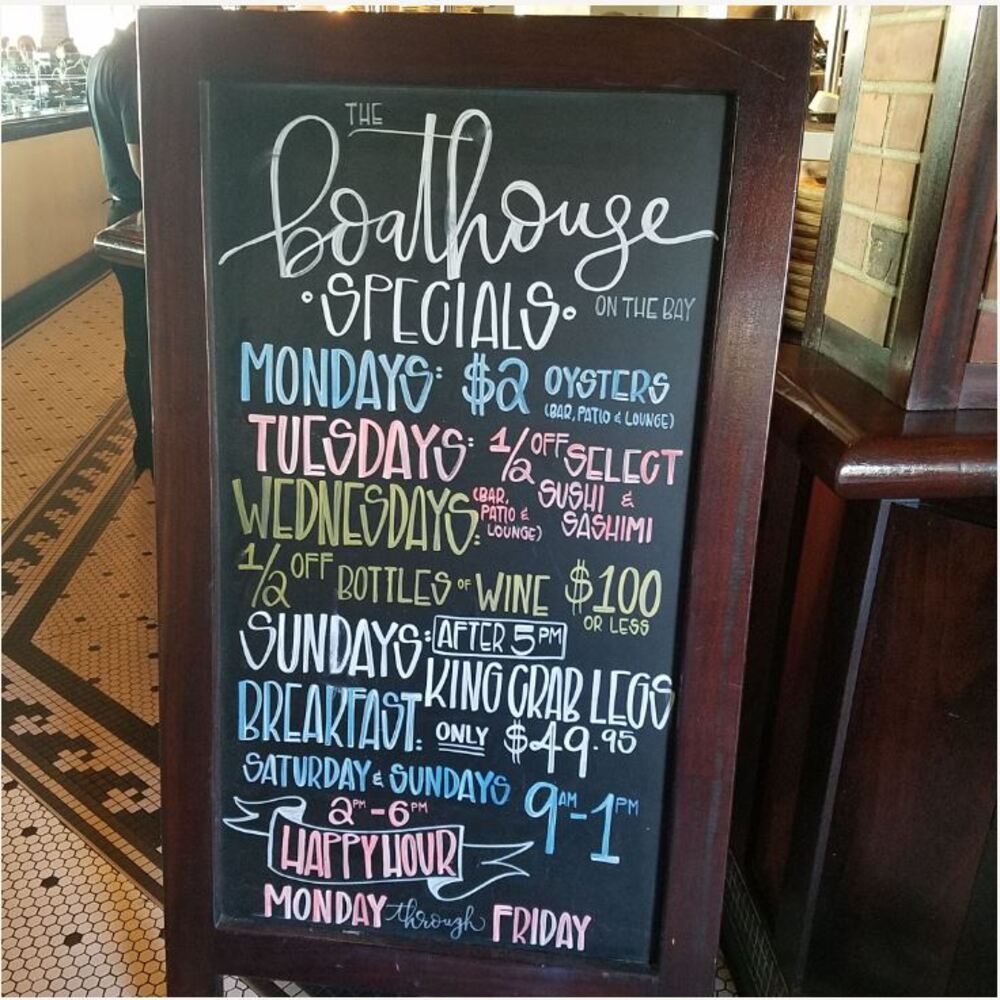 THE
boathouse
•SPECIALS•
ON THE BAY
MONDAYS: $2 OYSTERS
(BAR, PATIO & LOUNGE)
TUESDAYS: 1/2 OFF SELECT
SUSHI &
SASHIMI
(BAR,
PATIO &
LOUNGE)
WEDNESDAYS:
1/2 OFF BOTTLES OF WINE $100
OR LESS
SUNDAYS: AFTER 5PM
KING CRAB LEGS
ONLY $49.95
BREAKFAST:
SATURDAY & SUNDAYS 9AM-1PM
2PM-6PM
HAPPY HOUR
MONDAY through FRIDAY